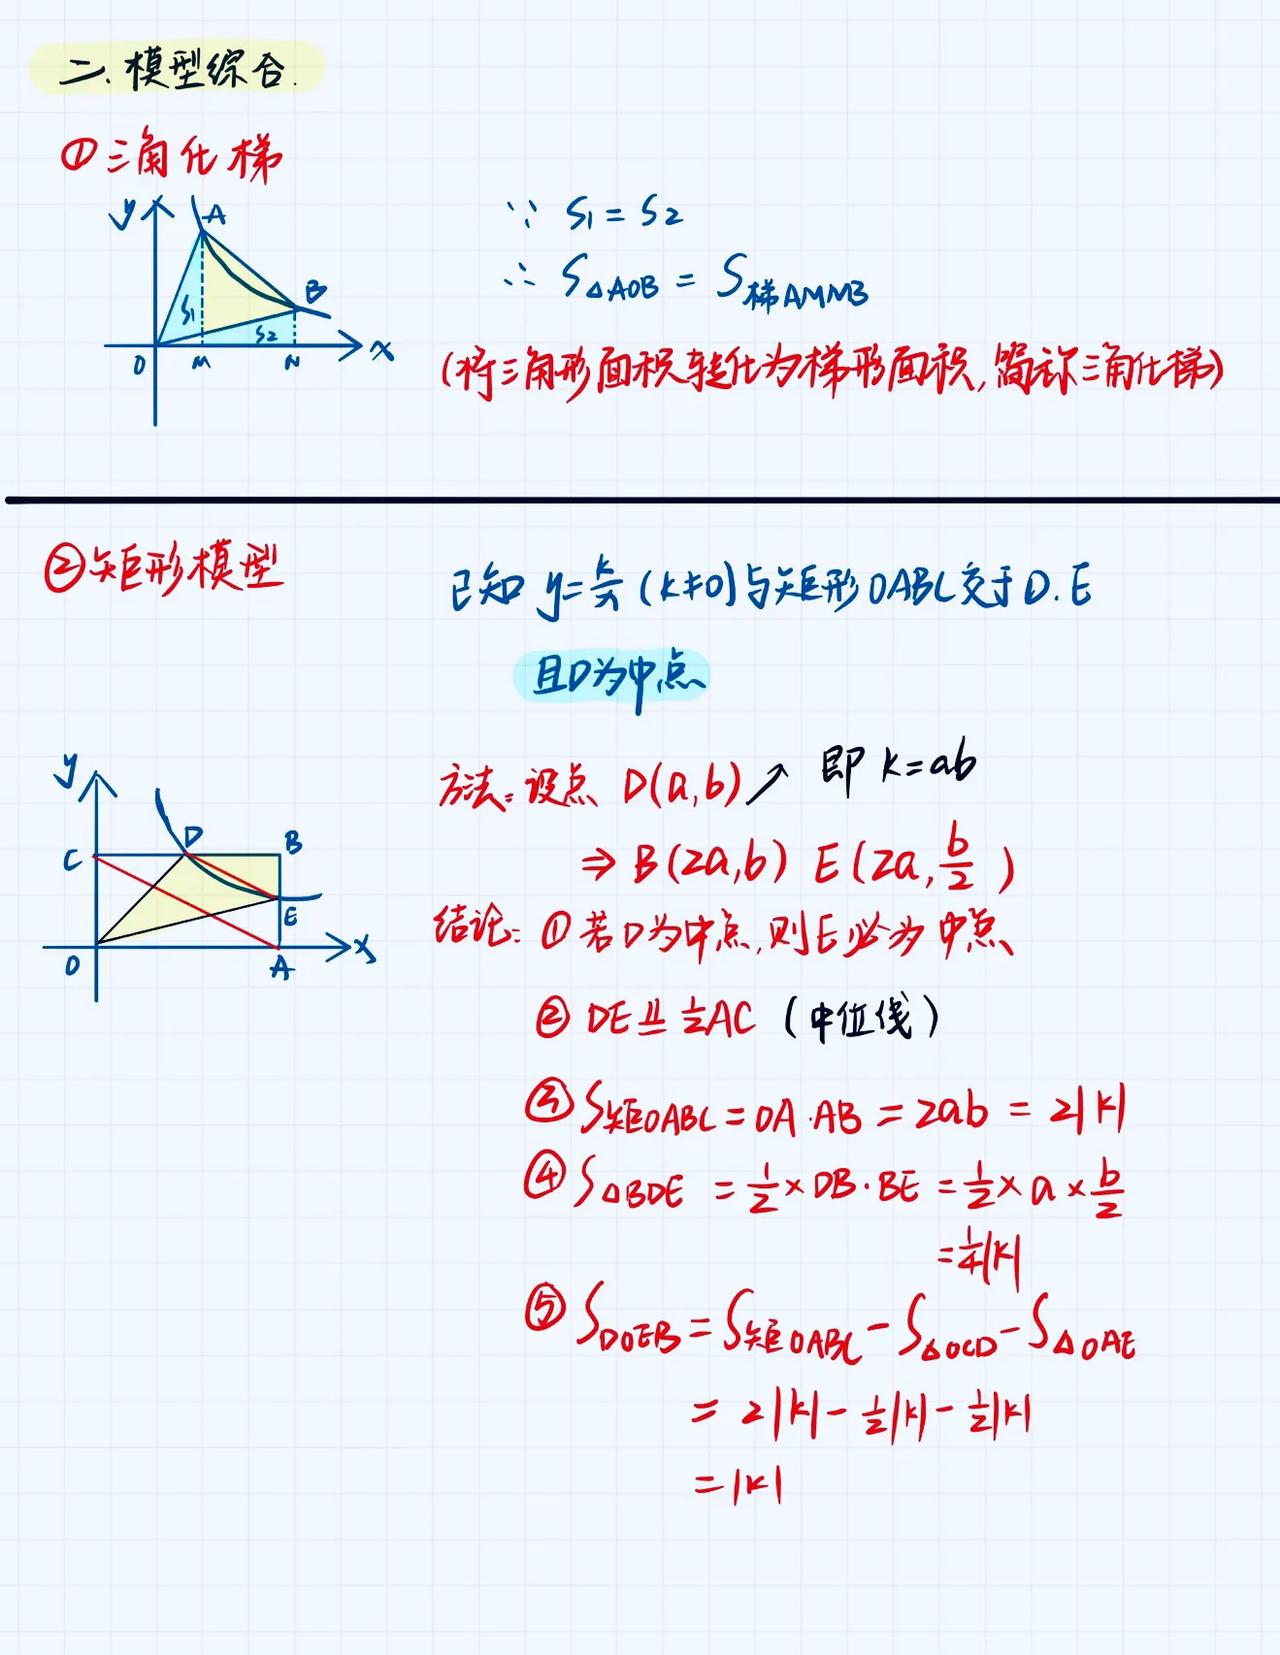 二.模型综合.
①三角化梯
y A B S₁ S₂ O M N x
∵ S₁=S₂
∴ S△AOB=S梯AMNB
(将三角形面积转化为梯形面积,简称三角化梯)
②矩形模型
已知 y=k/x (k≠0)与矩形OABC交于D.E
且D为中点
y C D B E O A x
方法:设点 D(a,b)↗ 即 k=ab
⇒ B(2a,b) E(2a,b/2)
结论:①若D为中点,则E必为中点
②DE∥=1/2AC (中位线)
③S矩OABC=OA·AB=2ab=2|k|
④S△BDE=1/2×DB·BE=1/2×a×b/2
=1/4|k|
⑤SDOEB=S矩OABC-S△OCD-S△OAE
=2|k|-1/2|k|-1/2|k|
=|k|